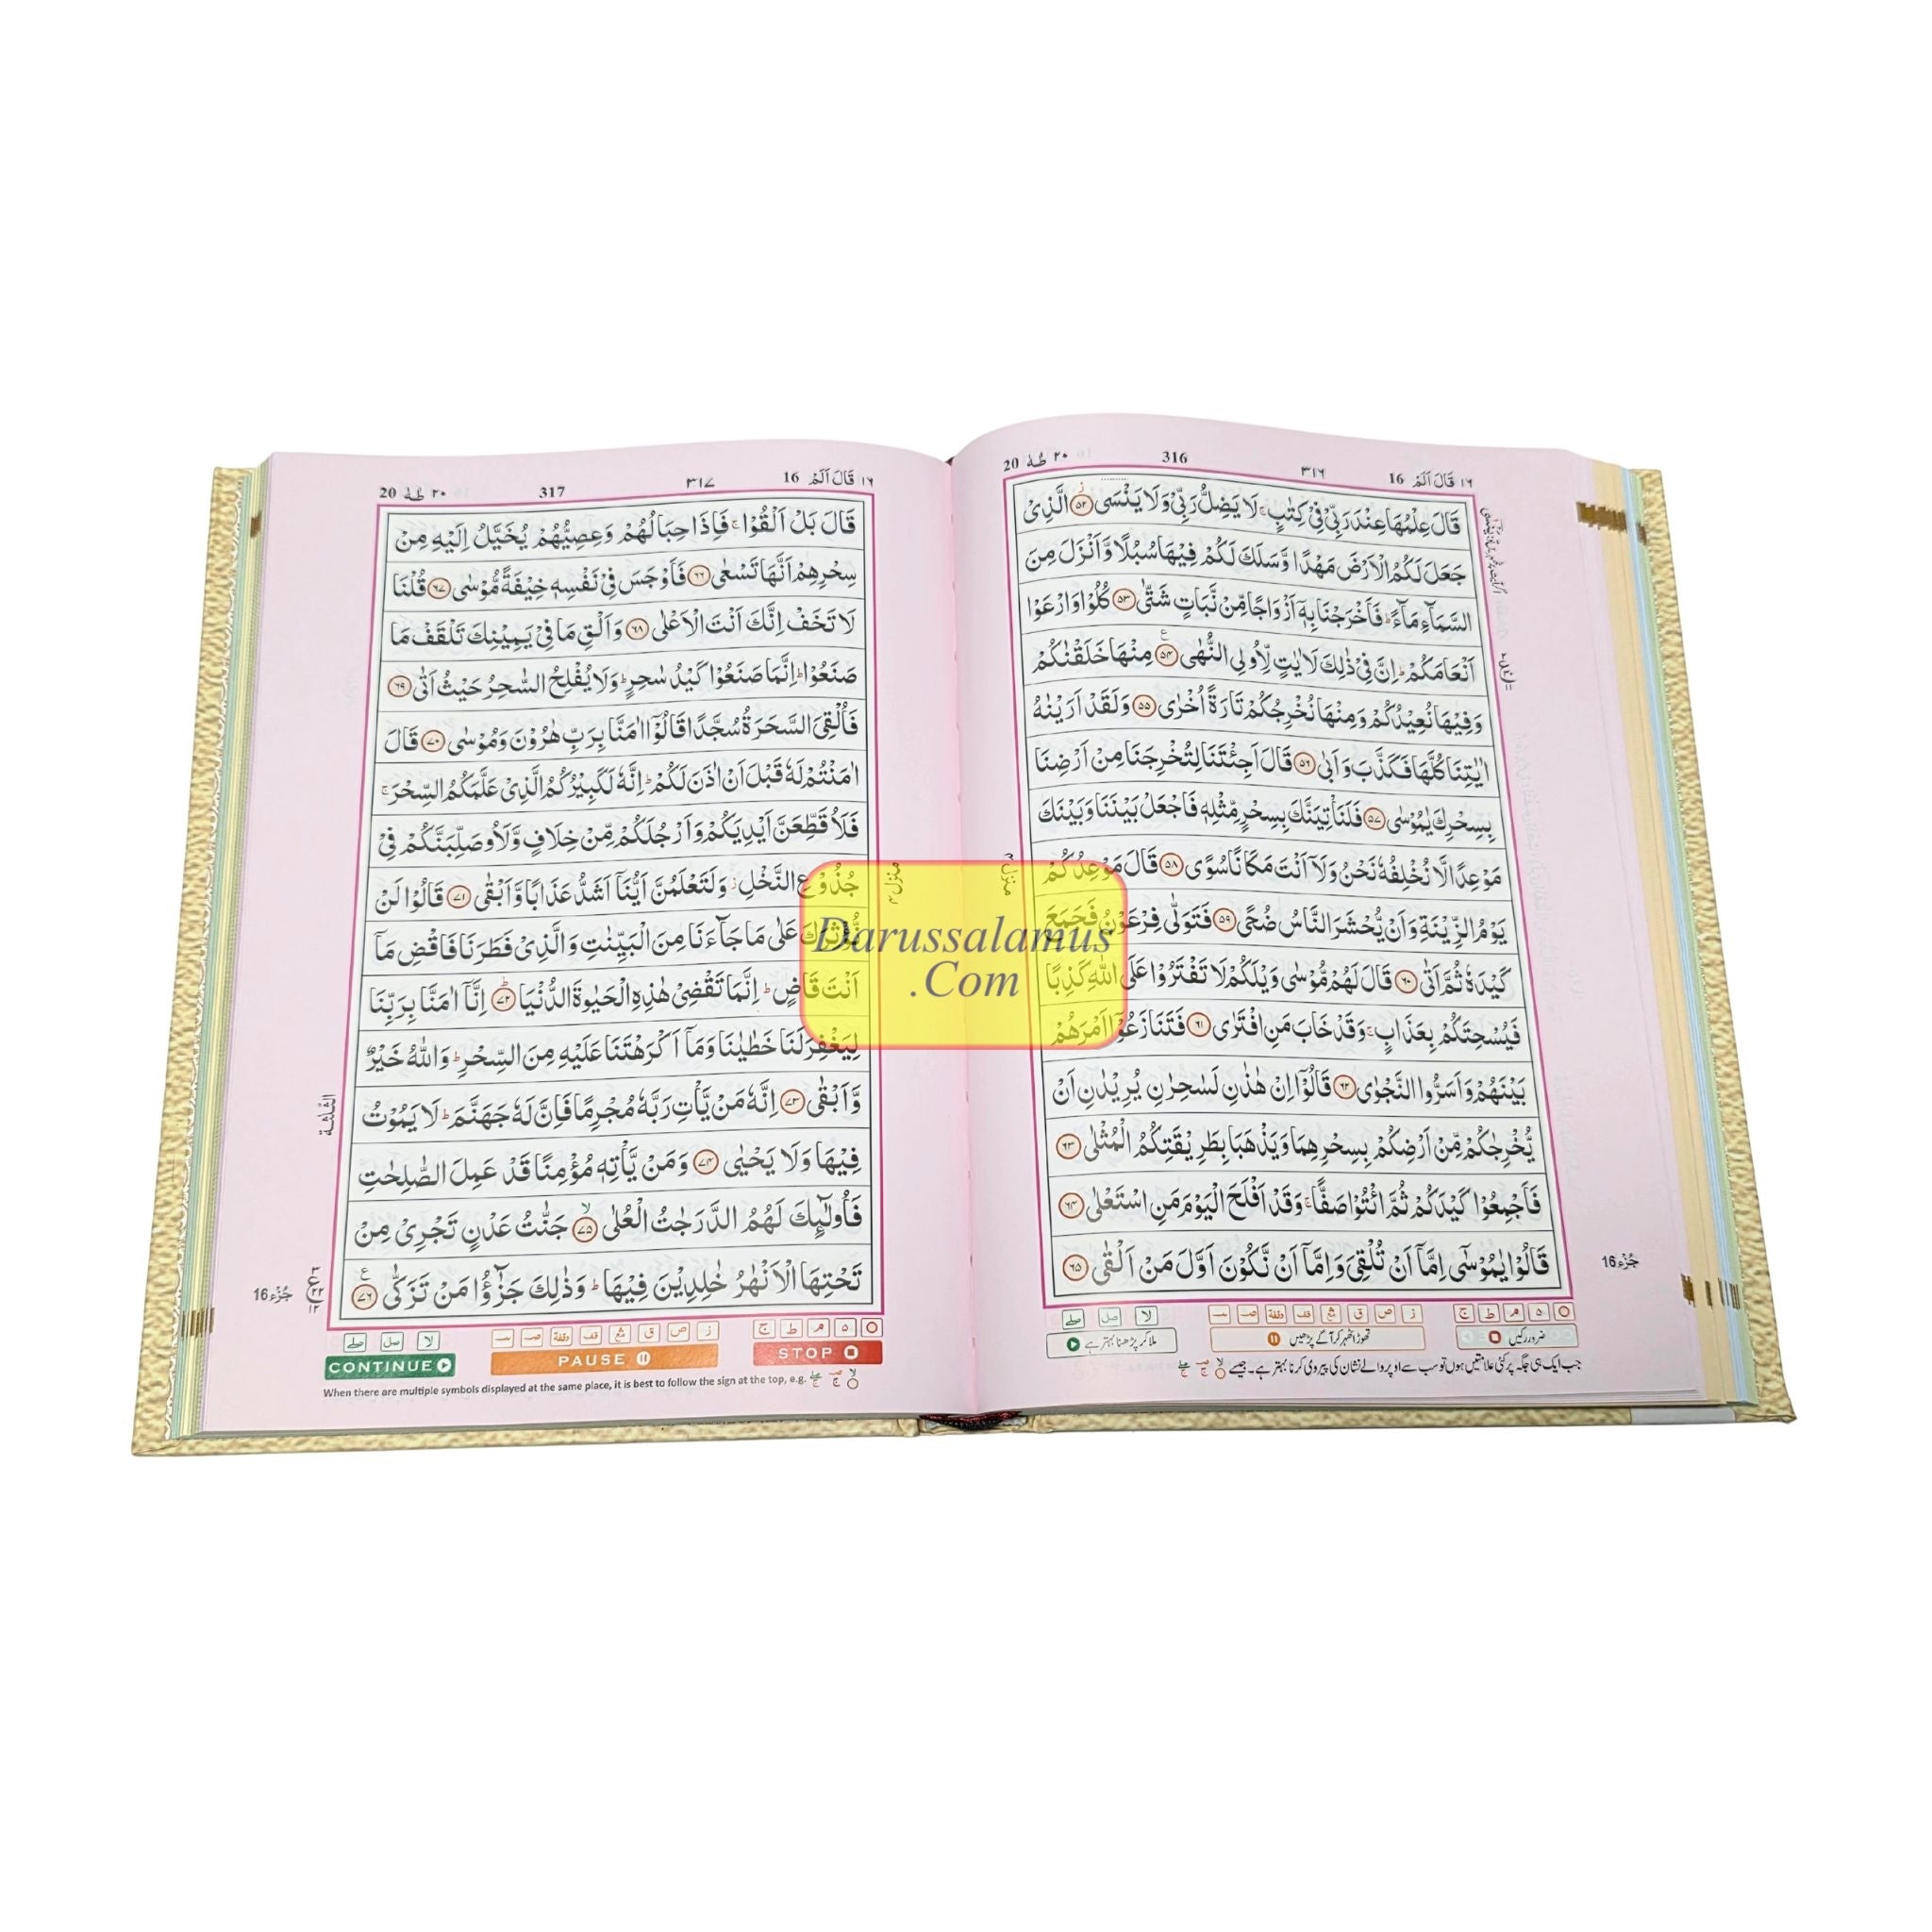 ١٦ قَالَ اَلَمْ 16
٣١٦
316
٢٠ طٰهٰ 20
قَالَ عِلْمُهَا عِنْدَ رَبِّيْ فِيْ كِتٰبٍ ۚ لَا يَضِلُّ رَبِّيْ وَلَا يَنْسَى ۟ ٥٢ الَّذِيْ
جَعَلَ لَكُمُ الْاَرْضَ مَهْدًا وَّسَلَكَ لَكُمْ فِيْهَا سُبُلًا وَّاَنْزَلَ مِنَ
السَّمَآءِ مَآءً ؕ فَاَخْرَجْنَا بِهٖٓ اَزْوَاجًا مِّنْ نَّبَاتٍ شَتّٰى ٥٣ كُلُوْا وَارْعَوْا
اَنْعَامَكُمْ ؕ اِنَّ فِيْ ذٰلِكَ لَاٰيٰتٍ لِّاُولِى النُّهٰى ٥٤ مِنْهَا خَلَقْنٰكُمْ
وَفِيْهَا نُعِيْدُكُمْ وَمِنْهَا نُخْرِجُكُمْ تَارَةً اُخْرٰى ٥٥ وَلَقَدْ اَرَيْنٰهُ
اٰيٰتِنَا كُلَّهَا فَكَذَّبَ وَاَبٰى ٥٦ قَالَ اَجِئْتَنَا لِتُخْرِجَنَا مِنْ اَرْضِنَا
بِسِحْرِكَ يٰمُوْسٰى ٥٧ فَلَنَاْتِيَنَّكَ بِسِحْرٍ مِّثْلِهٖ فَاجْعَلْ بَيْنَنَا وَبَيْنَكَ
مَوْعِدًا لَّا نُخْلِفُهٗ نَحْنُ وَلَآ اَنْتَ مَكَانًا سُوًى ٥٨ قَالَ مَوْعِدُكُمْ
يَوْمُ الزِّيْنَةِ وَاَنْ يُّحْشَرَ النَّاسُ ضُحًى ٥٩ فَتَوَلّٰى فِرْعَوْنُ فَجَمَعَ
كَيْدَهٗ ثُمَّ اَتٰى ٦٠ قَالَ لَهُمْ مُّوْسٰى وَيْلَكُمْ لَا تَفْتَرُوْا عَلَى اللّٰهِ كَذِبًا
فَيُسْحِتَكُمْ بِعَذَابٍ ۚ وَقَدْ خَابَ مَنِ افْتَرٰى ٦١ فَتَنَازَعُوْٓا اَمْرَهُمْ
بَيْنَهُمْ وَاَسَرُّوا النَّجْوٰى ٦٢ قَالُوْٓا اِنْ هٰذٰنِ لَسٰحِرٰنِ يُرِيْدٰنِ اَنْ
يُّخْرِجٰكُمْ مِّنْ اَرْضِكُمْ بِسِحْرِهِمَا وَيَذْهَبَا بِطَرِيْقَتِكُمُ الْمُثْلٰى ٦٣
فَاَجْمِعُوْا كَيْدَكُمْ ثُمَّ ائْتُوْا صَفًّا ۚ وَقَدْ اَفْلَحَ الْيَوْمَ مَنِ اسْتَعْلٰى ٦٤
قَالُوْا يٰمُوْسٰٓى اِمَّآ اَنْ تُلْقِيَ وَاِمَّآ اَنْ نَّكُوْنَ اَوَّلَ مَنْ اَلْقٰى ٦٥
منزل ٤
جُزْء 16
ج ط م ٥ O
ز ص ق قف وقفة
لا صل صلے
ضرور رکیں
تھوڑا ٹھہر کر آگے پڑھیں
ملا کر پڑھنا بہتر ہے
جب ایک ہی جگہ پر کئی علامتیں ہوں تو سب سے اوپر والے نشان کی پیروی کرنا بہتر ہے۔ جیسے
١٦ قَالَ اَلَمْ 16
٣١٧
317
٢٠ طٰهٰ 20
قَالَ بَلْ اَلْقُوْا ۚ فَاِذَا حِبَالُهُمْ وَعِصِيُّهُمْ يُخَيَّلُ اِلَيْهِ مِنْ
سِحْرِهِمْ اَنَّهَا تَسْعٰى ٦٦ فَاَوْجَسَ فِيْ نَفْسِهٖ خِيْفَةً مُّوْسٰى ٦٧ قُلْنَا
لَا تَخَفْ اِنَّكَ اَنْتَ الْاَعْلٰى ٦٨ وَاَلْقِ مَا فِيْ يَمِيْنِكَ تَلْقَفْ مَا
صَنَعُوْا ؕ اِنَّمَا صَنَعُوْا كَيْدُ سٰحِرٍ ؕ وَلَا يُفْلِحُ السّٰحِرُ حَيْثُ اَتٰى ٦٩
فَاُلْقِيَ السَّحَرَةُ سُجَّدًا قَالُوْٓا اٰمَنَّا بِرَبِّ هٰرُوْنَ وَمُوْسٰى ٧٠ قَالَ
اٰمَنْتُمْ لَهٗ قَبْلَ اَنْ اٰذَنَ لَكُمْ ؕ اِنَّهٗ لَكَبِيْرُكُمُ الَّذِيْ عَلَّمَكُمُ السِّحْرَ ۚ
فَلَاُقَطِّعَنَّ اَيْدِيَكُمْ وَاَرْجُلَكُمْ مِّنْ خِلَافٍ وَّلَاُوصَلِّبَنَّكُمْ فِيْ
جُذُوْعِ النَّخْلِ ز وَلَتَعْلَمُنَّ اَيُّنَآ اَشَدُّ عَذَابًا وَّاَبْقٰى ٧١ قَالُوْا لَنْ
نُّؤْثِرَكَ عَلٰى مَا جَآءَنَا مِنَ الْبَيِّنٰتِ وَالَّذِيْ فَطَرَنَا فَاقْضِ مَآ
اَنْتَ قَاضٍ ؕ اِنَّمَا تَقْضِيْ هٰذِهِ الْحَيٰوةَ الدُّنْيَا ٧٢ؕ اِنَّآ اٰمَنَّا بِرَبِّنَا
لِيَغْفِرَ لَنَا خَطٰيٰنَا وَمَآ اَكْرَهْتَنَا عَلَيْهِ مِنَ السِّحْرِ ؕ وَاللّٰهُ خَيْرٌ
وَّاَبْقٰى ٧٣ اِنَّهٗ مَنْ يَّاْتِ رَبَّهٗ مُجْرِمًا فَاِنَّ لَهٗ جَهَنَّمَ ؕ لَا يَمُوْتُ
فِيْهَا وَلَا يَحْيٰى ٧٤ وَمَنْ يَّاْتِهٖ مُؤْمِنًا قَدْ عَمِلَ الصّٰلِحٰتِ
فَاُولٰٓئِكَ لَهُمُ الدَّرَجٰتُ الْعُلٰى ٧٥ۙ جَنّٰتُ عَدْنٍ تَجْرِيْ مِنْ
تَحْتِهَا الْاَنْهٰرُ خٰلِدِيْنَ فِيْهَا ؕ وَذٰلِكَ جَزٰٓؤُا مَنْ تَزَكّٰى ٧٦
منزل ٤
الثلثة
جُزْء 16
ج ط م ٥ O
ز ص ق قف وقفة
لا صل صلے
CONTINUE
PAUSE
STOP
When there are multiple symbols displayed at the same place, it is best to follow the sign at the top, e.g.
Darussalamus
.Com